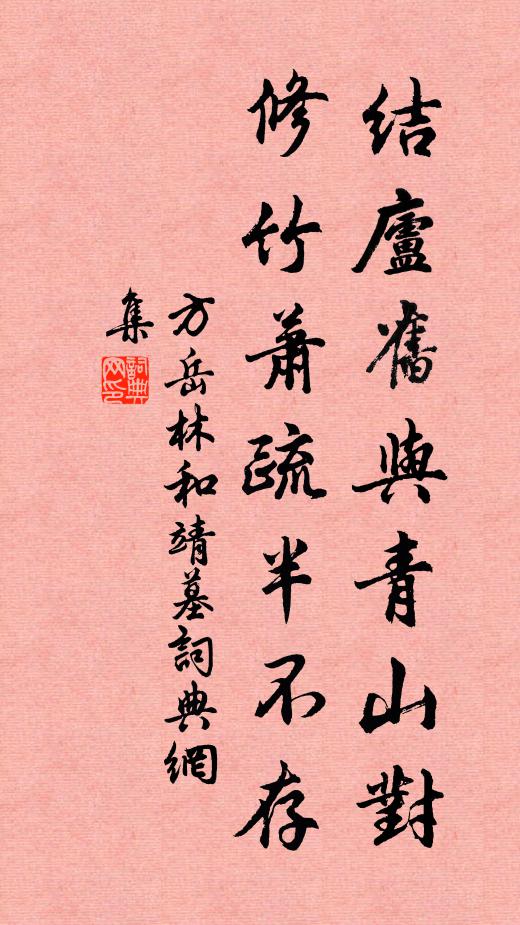 结廬舊與青山對
修竹蕭疏半不存
方岳林和靖墓詞典網
集
詞典
网印